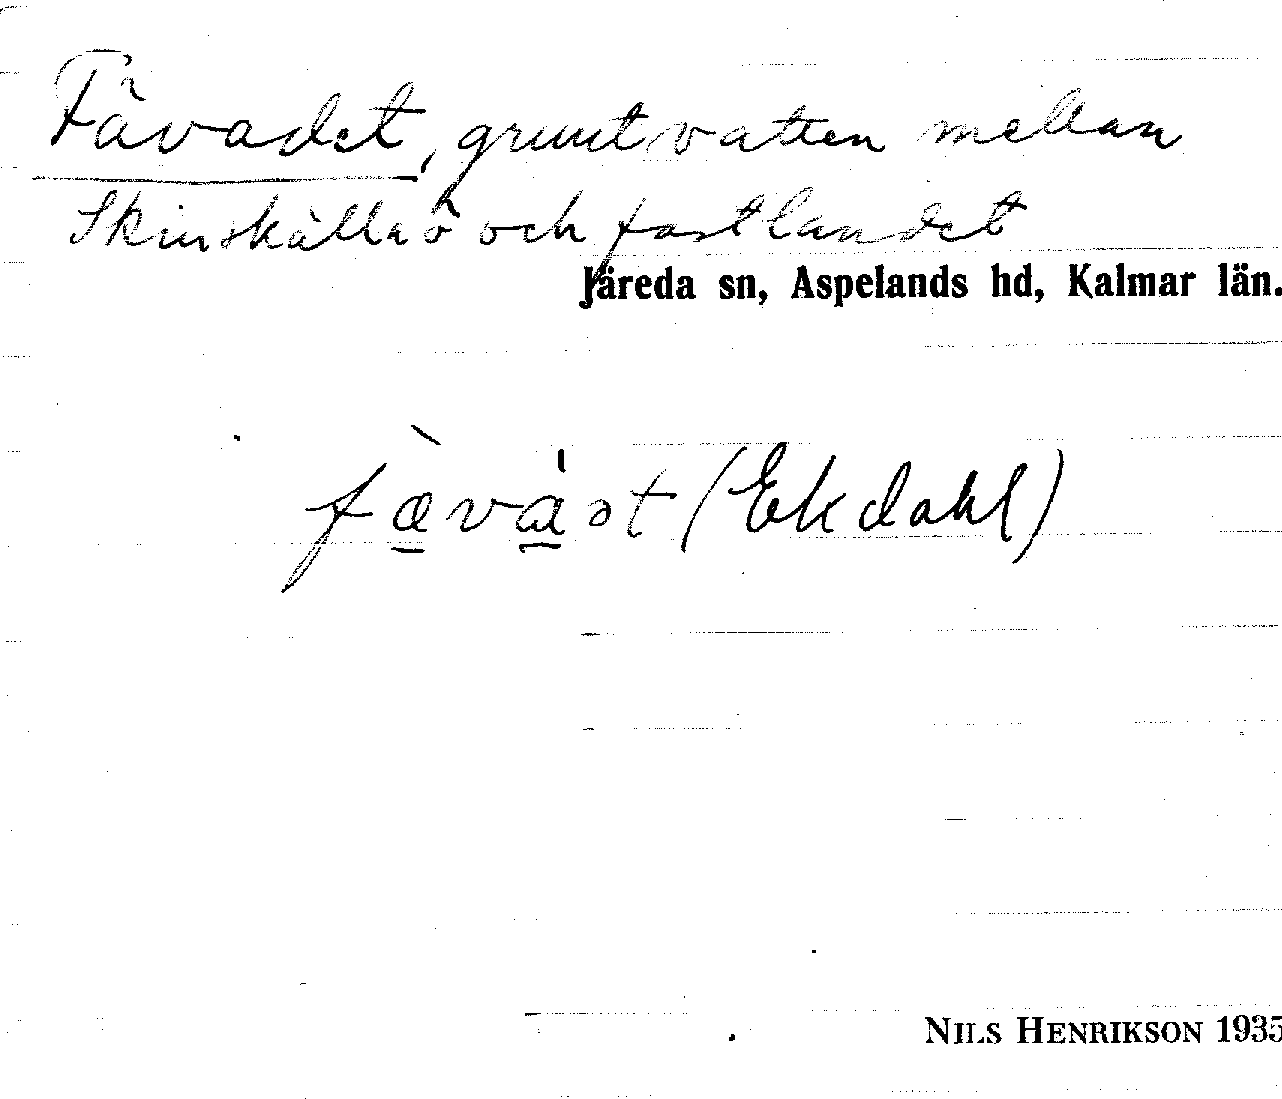 Fävadet, grunt vatten mellan
Skinskälla ö och fastlandet
Järeda sn, Aspelands hd, Kalmar län.
(Ekdahl)
NILS HENRIKSON 1935